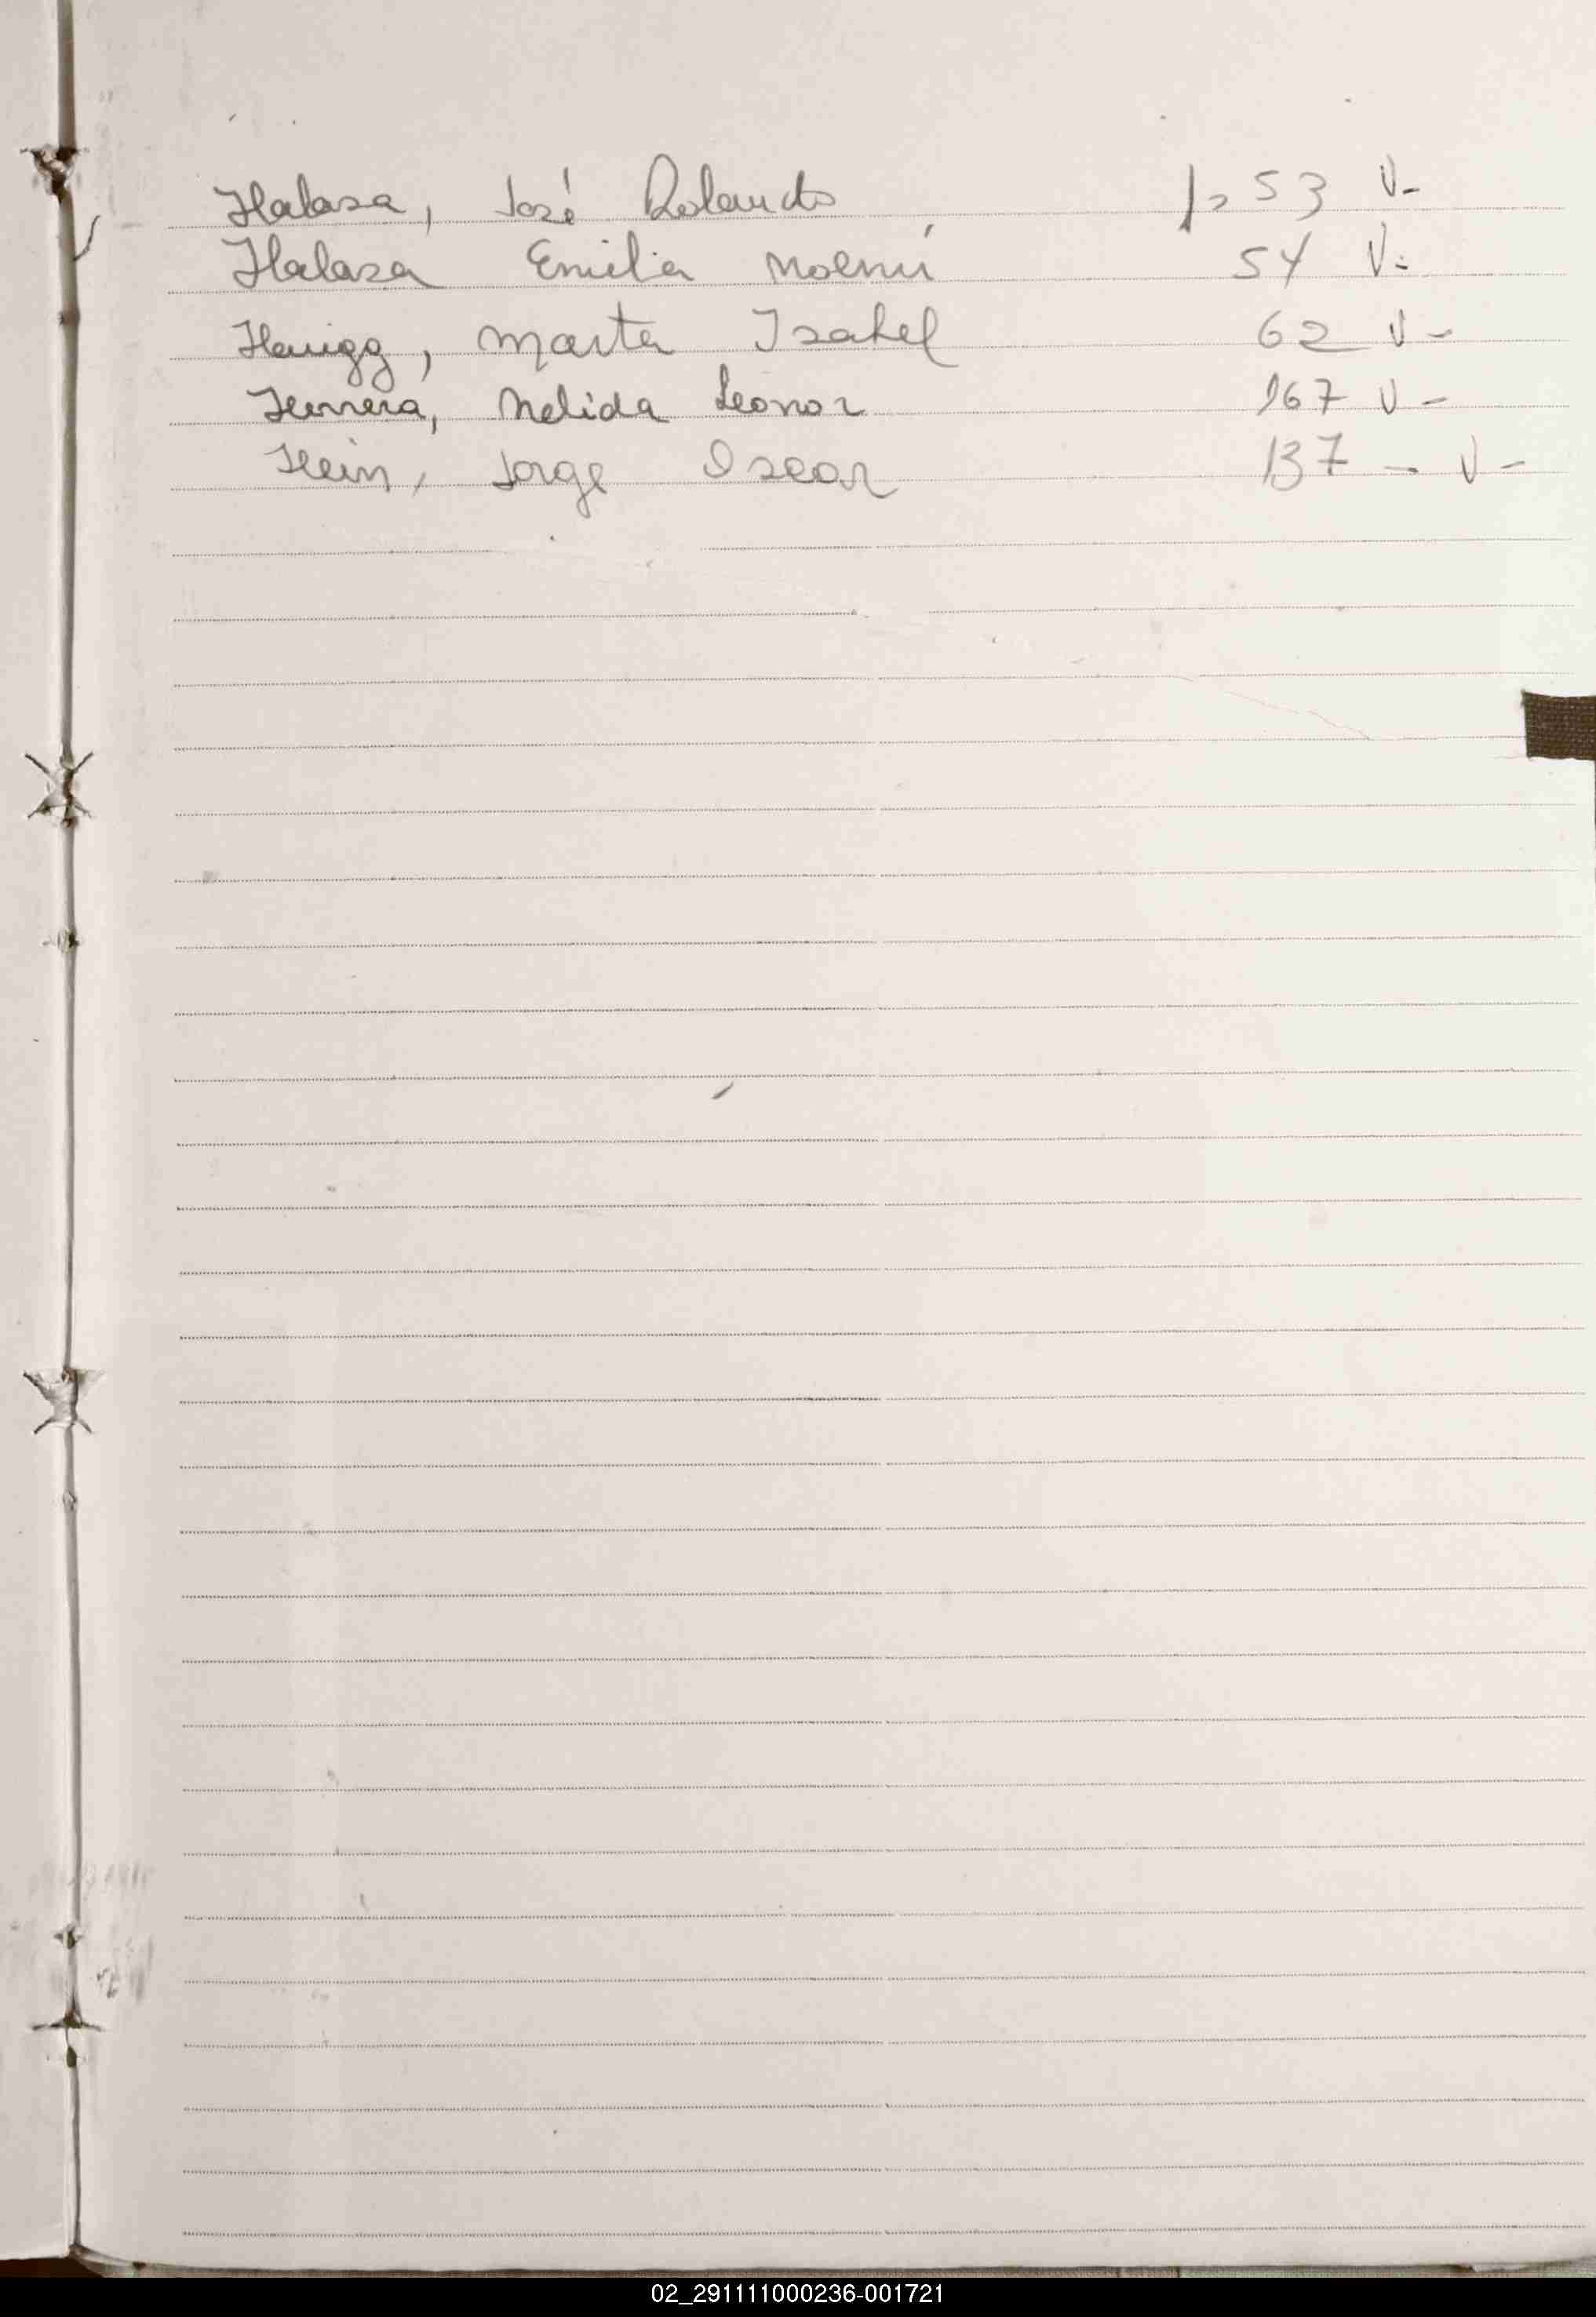 Halasa, José Rolando 53 V-
Halasa Emilia Noemí 54 V-
Haugg, Marta Isabel 62 V-
Herrera, Nelida Leonor 167 V-
Hein, Jorge Oscar 137 - V-
02_291111000236-001721